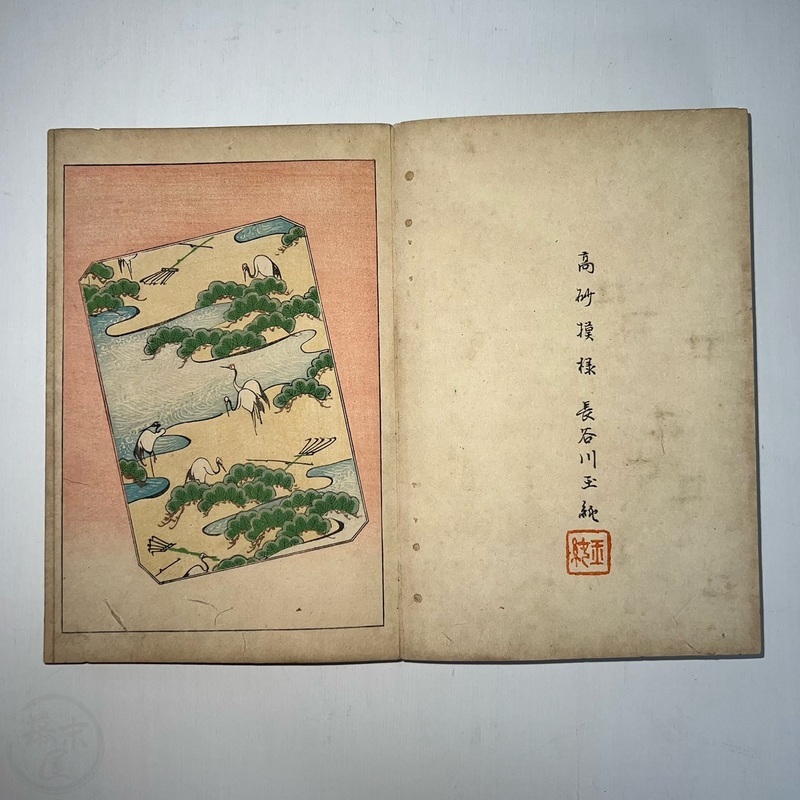 高砂摸様 長谷川玉純
玉純